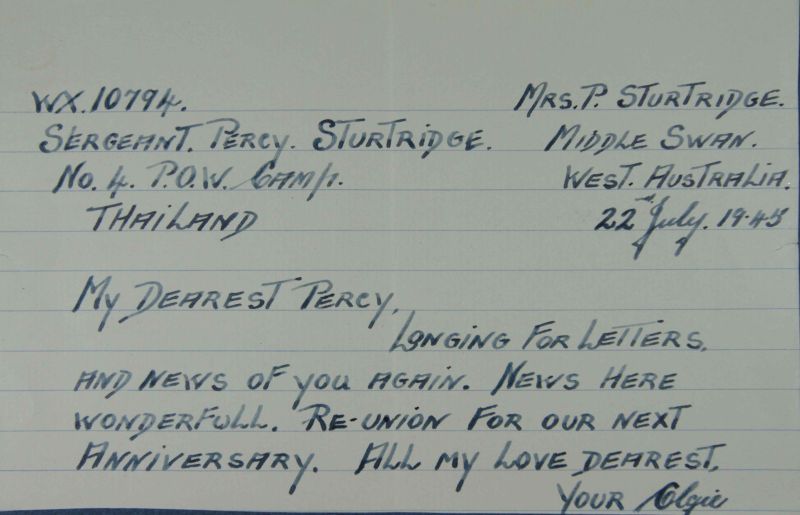 WX.10794.
SERGEANT. PERCY. STURTRIDGE.
No. 4. P.O.W. Camp.
THAILAND
MRS. P. STURTRIDGE.
MIDDLE SWAN.
WEST. AUSTRALIA.
22nd July. 1945
My DEAREST PERCY,
LONGING FOR LETTERS,
AND NEWS OF you AGAIN. NEWS HERE
WONDERFULL. RE-UNION FOR OUR NEXT
ANNIVERSARY. ALL my LOVE DEAREST,
YOUR Olgie